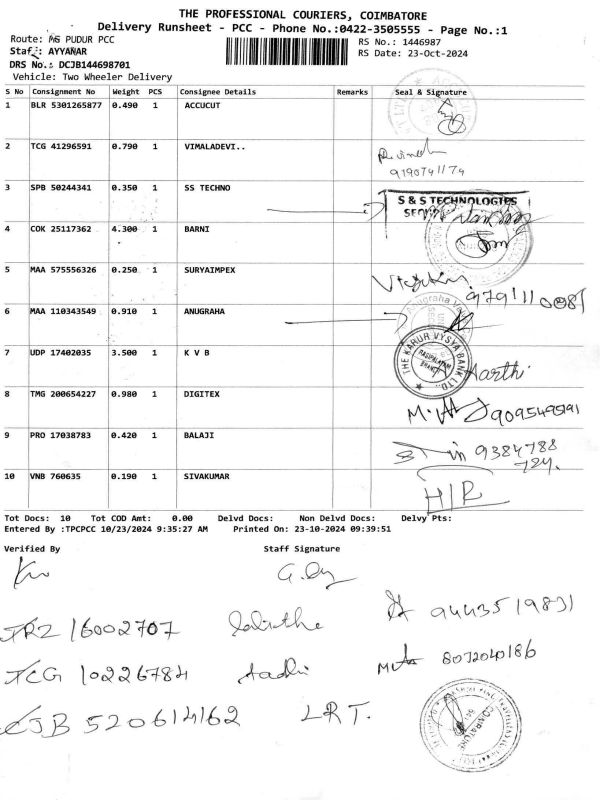 THE PROFESSIONAL COURIERS, COIMBATORE
Delivery Runsheet - PCC - Phone No.:0422-3505555 - Page No.:1
Route: MS PUDUR PCC RS No.: 1446987
Staff: AYYANAR RS Date: 23-Oct-2024
DRS No.: DCJB144698701
Vehicle: Two Wheeler Delivery
S No Consignment No Weight PCS Consignee Details Remarks Seal & Signature
1 BLR 5301265877 0.490 1 ACCUCUT
2 TCG 41296591 0.790 1 VIMALADEVI..
3 SPB 50244341 0.350 1 SS TECHNO
S & S TECHNOLOGIES
4 COK 25117362 4.300 1 BARNI
5 MAA 575556326 0.250 1 SURYAIMPEX
6 MAA 110343549 0.910 1 ANUGRAHA
7 UDP 17402035 3.500 1 K V B
THE KARUR VYSYA BANK LTD.,
BRANCH
Aarthi
8 TMG 200654227 0.980 1 DIGITEX
9 PRO 17038783 0.420 1 BALAJI
9384788
724.
10 VNB 760635 0.190 1 SIVAKUMAR
H/R
Tot Docs: 10 Tot COD Amt: 0.00 Delvd Docs: Non Delvd Docs: Delvy Pts:
Entered By :TPCPCC 10/23/2024 9:35:27 AM Printed On: 23-10-2024 09:39:51
Verified By Staff Signature
16002707 9443519831
TCG 10226784 8072040186
CJB 520614162 LRT.